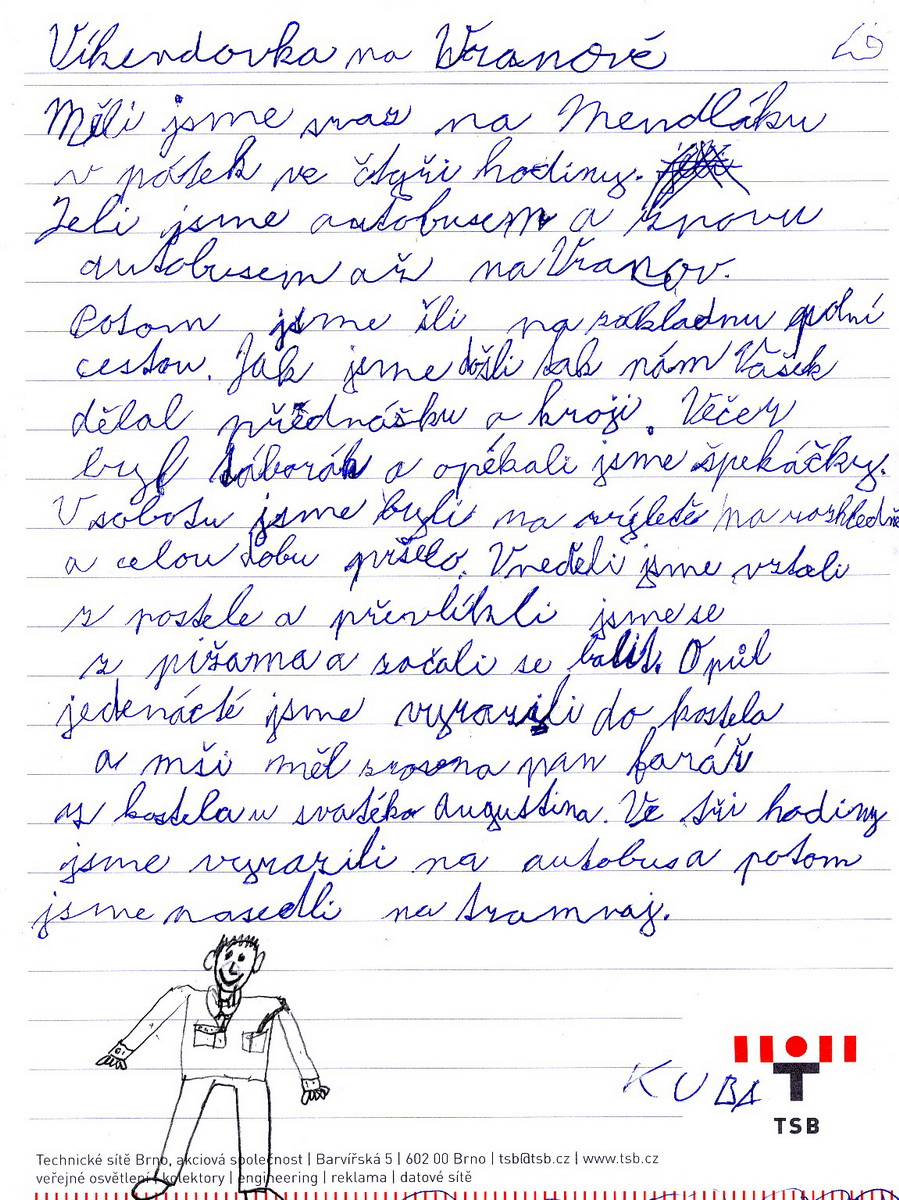 Víkendovka na Wranově
Měli jsme sraz na Mendláku
v pátek ve čtyři hodiny.
Jeli jsme autobusem a znovu
autobusem až na Vranov.
Potom jsme šli na základnu polní
cestou. Jak jsme došli tak nám Vášek
dělal přednášku o kroji. Večer
byl táborák a opékali jsme špekáčky.
V sobotu jsme byli na výletě na rozhledně
a celou dobu pršelo. Vneděli jsme vztali
z postele a převlíkli jsme se
z pižama a začali se balit. O půl
jedenácté jsme vyrazili do kostela
a mši měl zrovna pan farář
z kostela u svatého Augustina. Ve tři hodiny
jsme vyrazili na autobus a potom
jsme nasedli na tramvaj.
KUBA
TSB
Technické sítě Brno, akciová společnost | Barvířská 5 | 602 00 Brno | tsb@tsb.cz | www.tsb.cz
veřejné osvětlení | kolektory | engineering | reklama | datové sítě